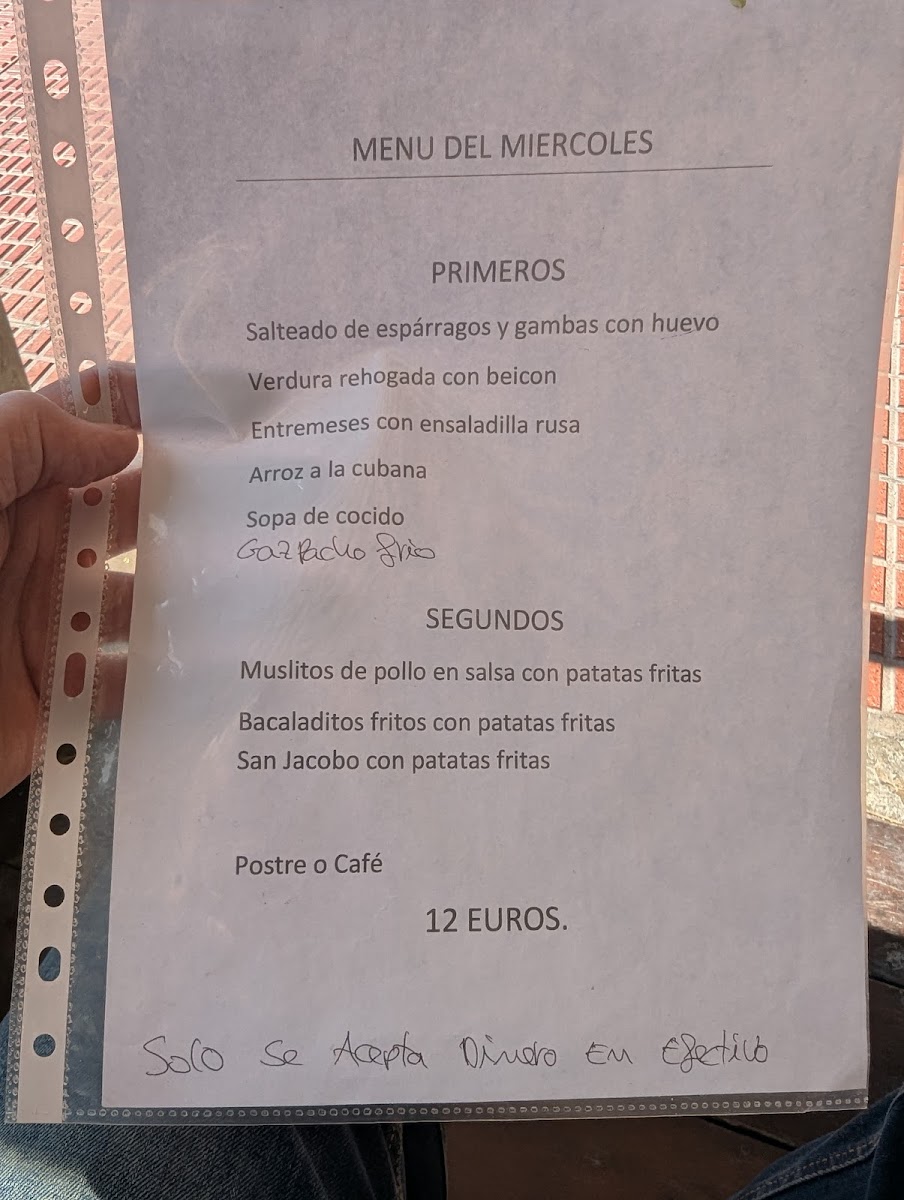 MENU DEL MIERCOLES
PRIMEROS
Salteado de espárragos y gambas con huevo
Verdura rehogada con beicon
Entremeses con ensaladilla rusa
Arroz a la cubana
Sopa de cocido
Gazpacho frio
SEGUNDOS
Muslitos de pollo en salsa con patatas fritas
Bacaladitos fritos con patatas fritas
San Jacobo con patatas fritas
Postre o Café
12 EUROS.
Solo Se Acepta Dinero En Efectivo